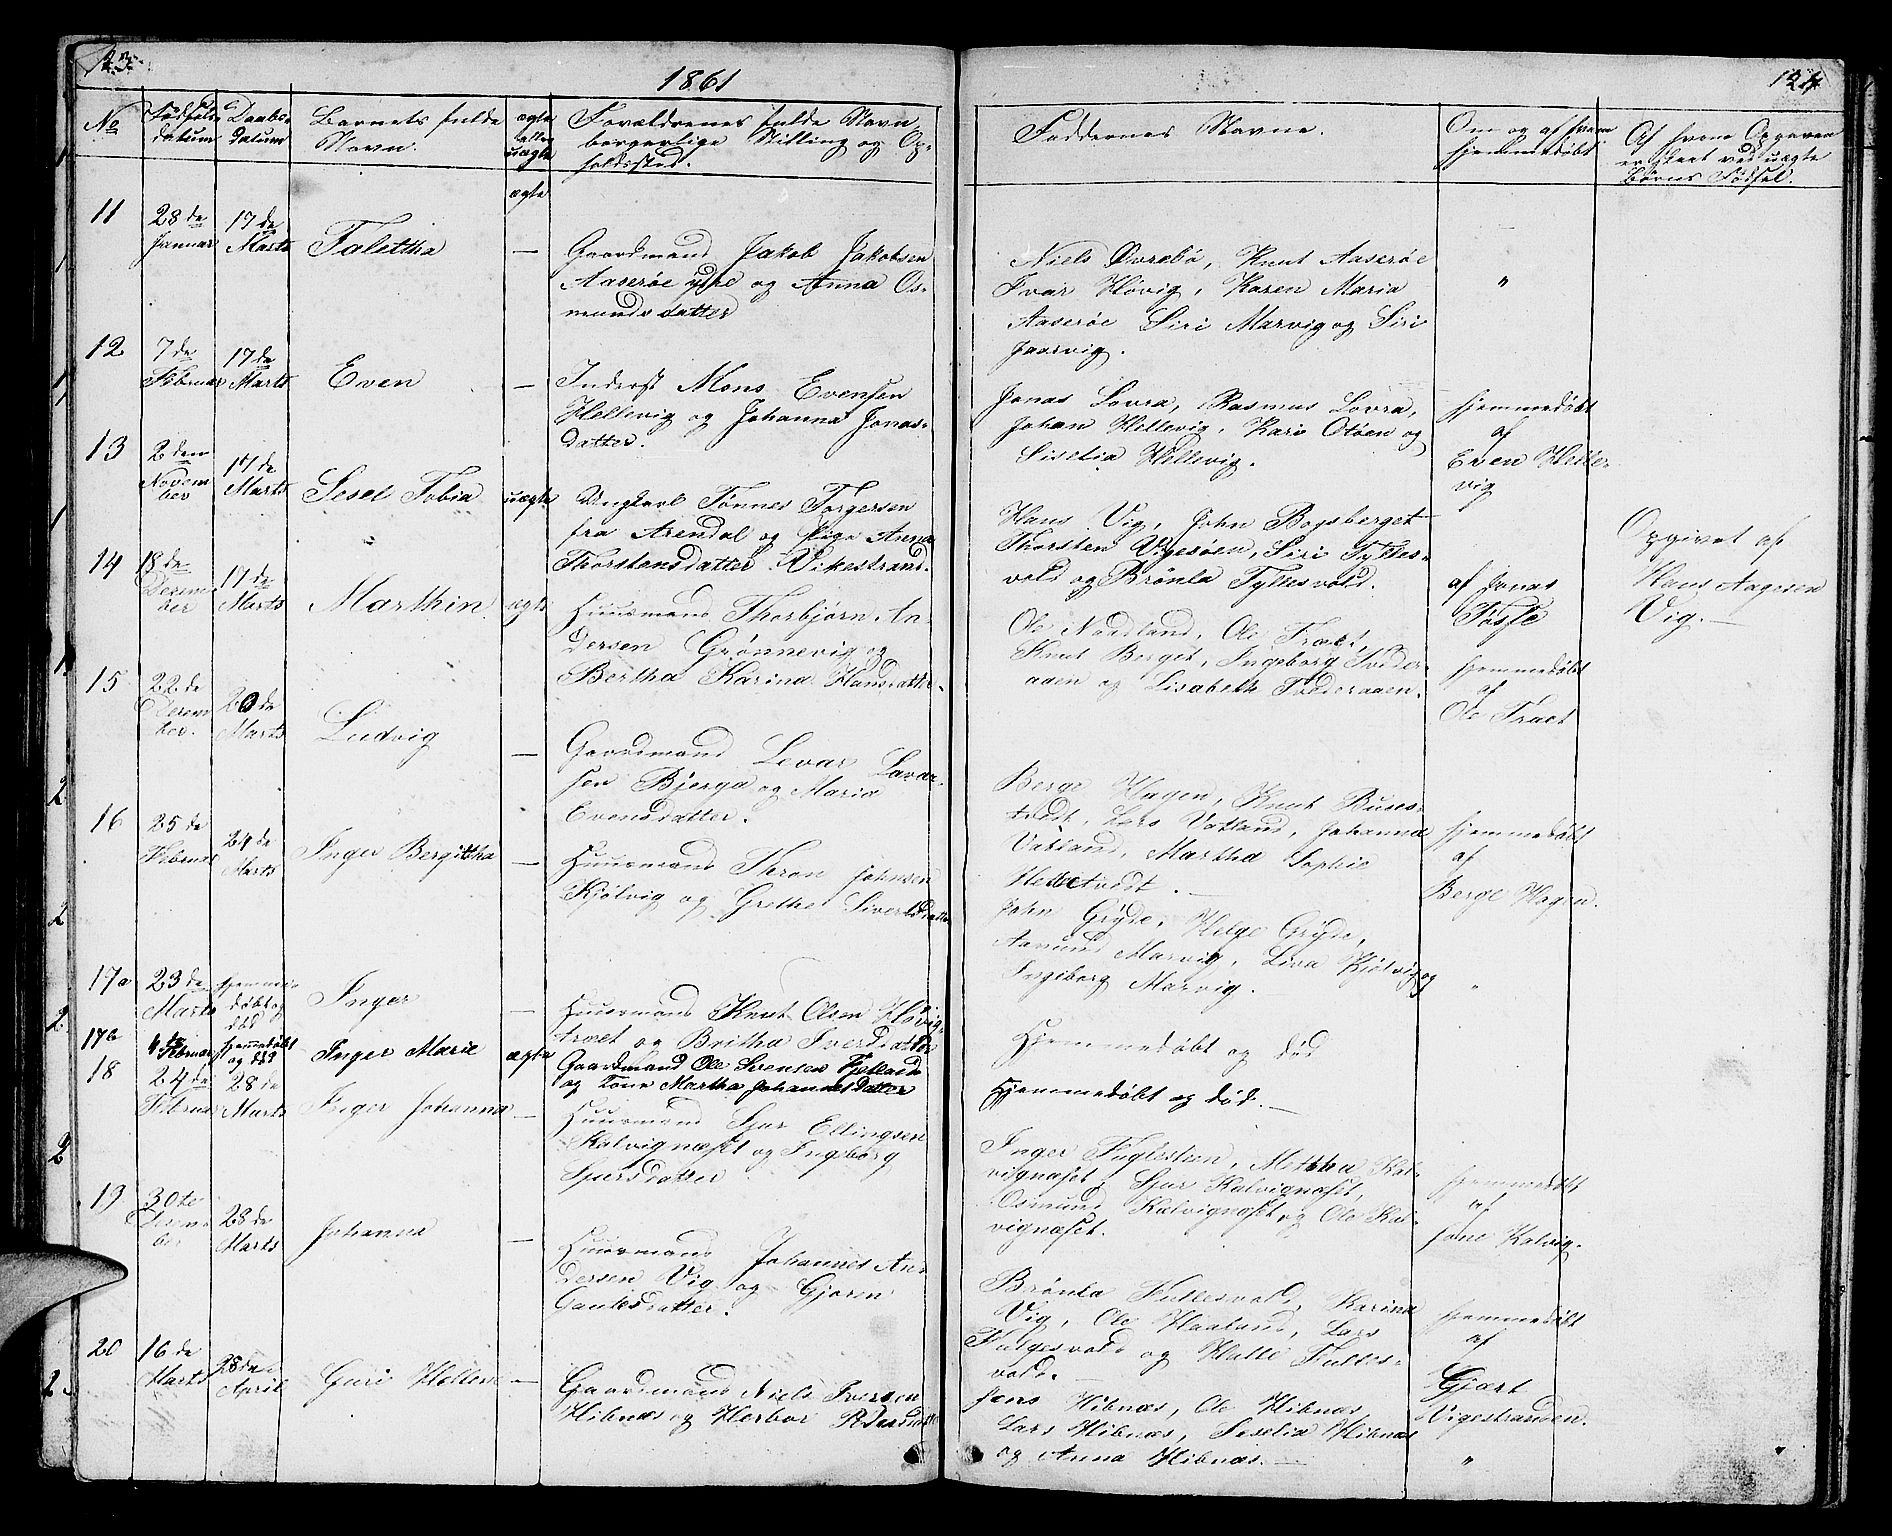 123.
1861
124
No
Fødsels
datum
Daabs
datum
Barnets fulde
Navn.
ægte
eller
uægte
Forældrenes fulde Navn
borgerlige Stilling og Op-
holdssted.
Faddernes Navne.
Om og af hvem
hjemmedøbt
Af hvem Opgaven
er skeet ved uægte
Børns Fødsel.
ægte
11
28de
Januar
17de
Marts
Talettha
—
Gaardmand Jakob Jakobsen
Aaserøe ydre og Anna Os-
mundsdatter
Niels Øvrebø, Knut Aaserøe
Ivar Høvig, Karen Maria
Aaserøe Siri Marvig og Siri
Jaarvig.
"
12
7de
Februar
17de
Marts
Even
—
Inderst Mons Evensen
Hellevig og Johanna Jonas-
datter.
Jonas Lovra, Rasmus Lovra,
Johan Hellevig, Kari Otøen og
Siselia Hellevig.
hjemmedøbt
af
Even Helle-
vig
13
2den
Novem
ber
17de
Marts
Sesel Tobia
uægte
Ungkarl Tønnes Torgersen
fra Arendal og Pige Anna
Thorstensdatter Vikestrand.
Hans Vig, John Bogsberget
Thorsten Vigesøen, Siri Tyttes-
vold og Brønla Tyttesvold.
af Jonas
Tøsse
Opgivet af
Hans Aagesen
Vig.—
14
18de
Decem
ber
17de
Marts
Marthin
ægte
Huusmand Thorbjørn An-
dersen Grønnevig og
Bertha Karina Hansdatter.
Ole Nordland, Ole Træet,
Knut Berget, Ingeborg
aaen og Lisabeth
hjemmedøbt
af
Ole Traet
15
22de
Decem
ber.
20de
Marts
Ludvig
—
Gaardmand Levar Lavar-
sen Bjerga og Maria
Evensdatter.
Berge Hagen, Knut Buues-
tvedt, Lars Vatland, Johanna
Vatland, Martha Sophie
Helletvedt.—
hjemmedøbt
af
Berge Hagen.
16
25de
Februar
24de
Marts
Inger Bergittha
—
Huusmand Thron Johnsen
Kjølvig og Grethe Sivertsdatter
John Gryde, Helge Gryde,
Aamund Marvig, Liva Kjølvig og
Ingeborg Marvig.
"
17a
23de
Marts
hjemme-
døbt og
død
Inger
—
Huusmand Knut Olsen Høvig-
træet og Britha Iversdatter
Hjemmedøbt og død
17b
4de
Februar
Hjemmedøbt
og død
Inger Marie
ægte
Gaardmand Ole Svensen Hetland
og Kone Martha Johannesdatter
Hjemmedøbt og død.—
18
24de
Februar
28de
Marts
Inger Johanna
—
Huusmand Sjur Ellingsen
Kalvignæset og Ingeborg
Sjursdatter
Inger Fuglesteen, Mettha Kal-
vignæset, Sjur Kalvignæset,
Osmund Kalvignæset og Ole Kal-
vignæset.
hjemmedøbt
af
Jone Kalvig.
19
30te
Decem-
ber
28de
Marts
Johanna
—
Huusmand Johannes An-
dersen Vig og Gjøren
Gautesdatter.
Brønla Tuttesvold, Karina
Vig, Ole Haaland, Lars
og
vold.
hjemmedøbt
af
Gjært
Vigestranden.
20
16de
Marts
28de
April
Guri Hellene
—
Gaardmand Niels Iversen
Hibnæs og Herbor
Jens Hibnæs, Ole Hibnæs,
Lars Hibnæs, Seselia Hibnæs
og Anna Hibnæs.—
"